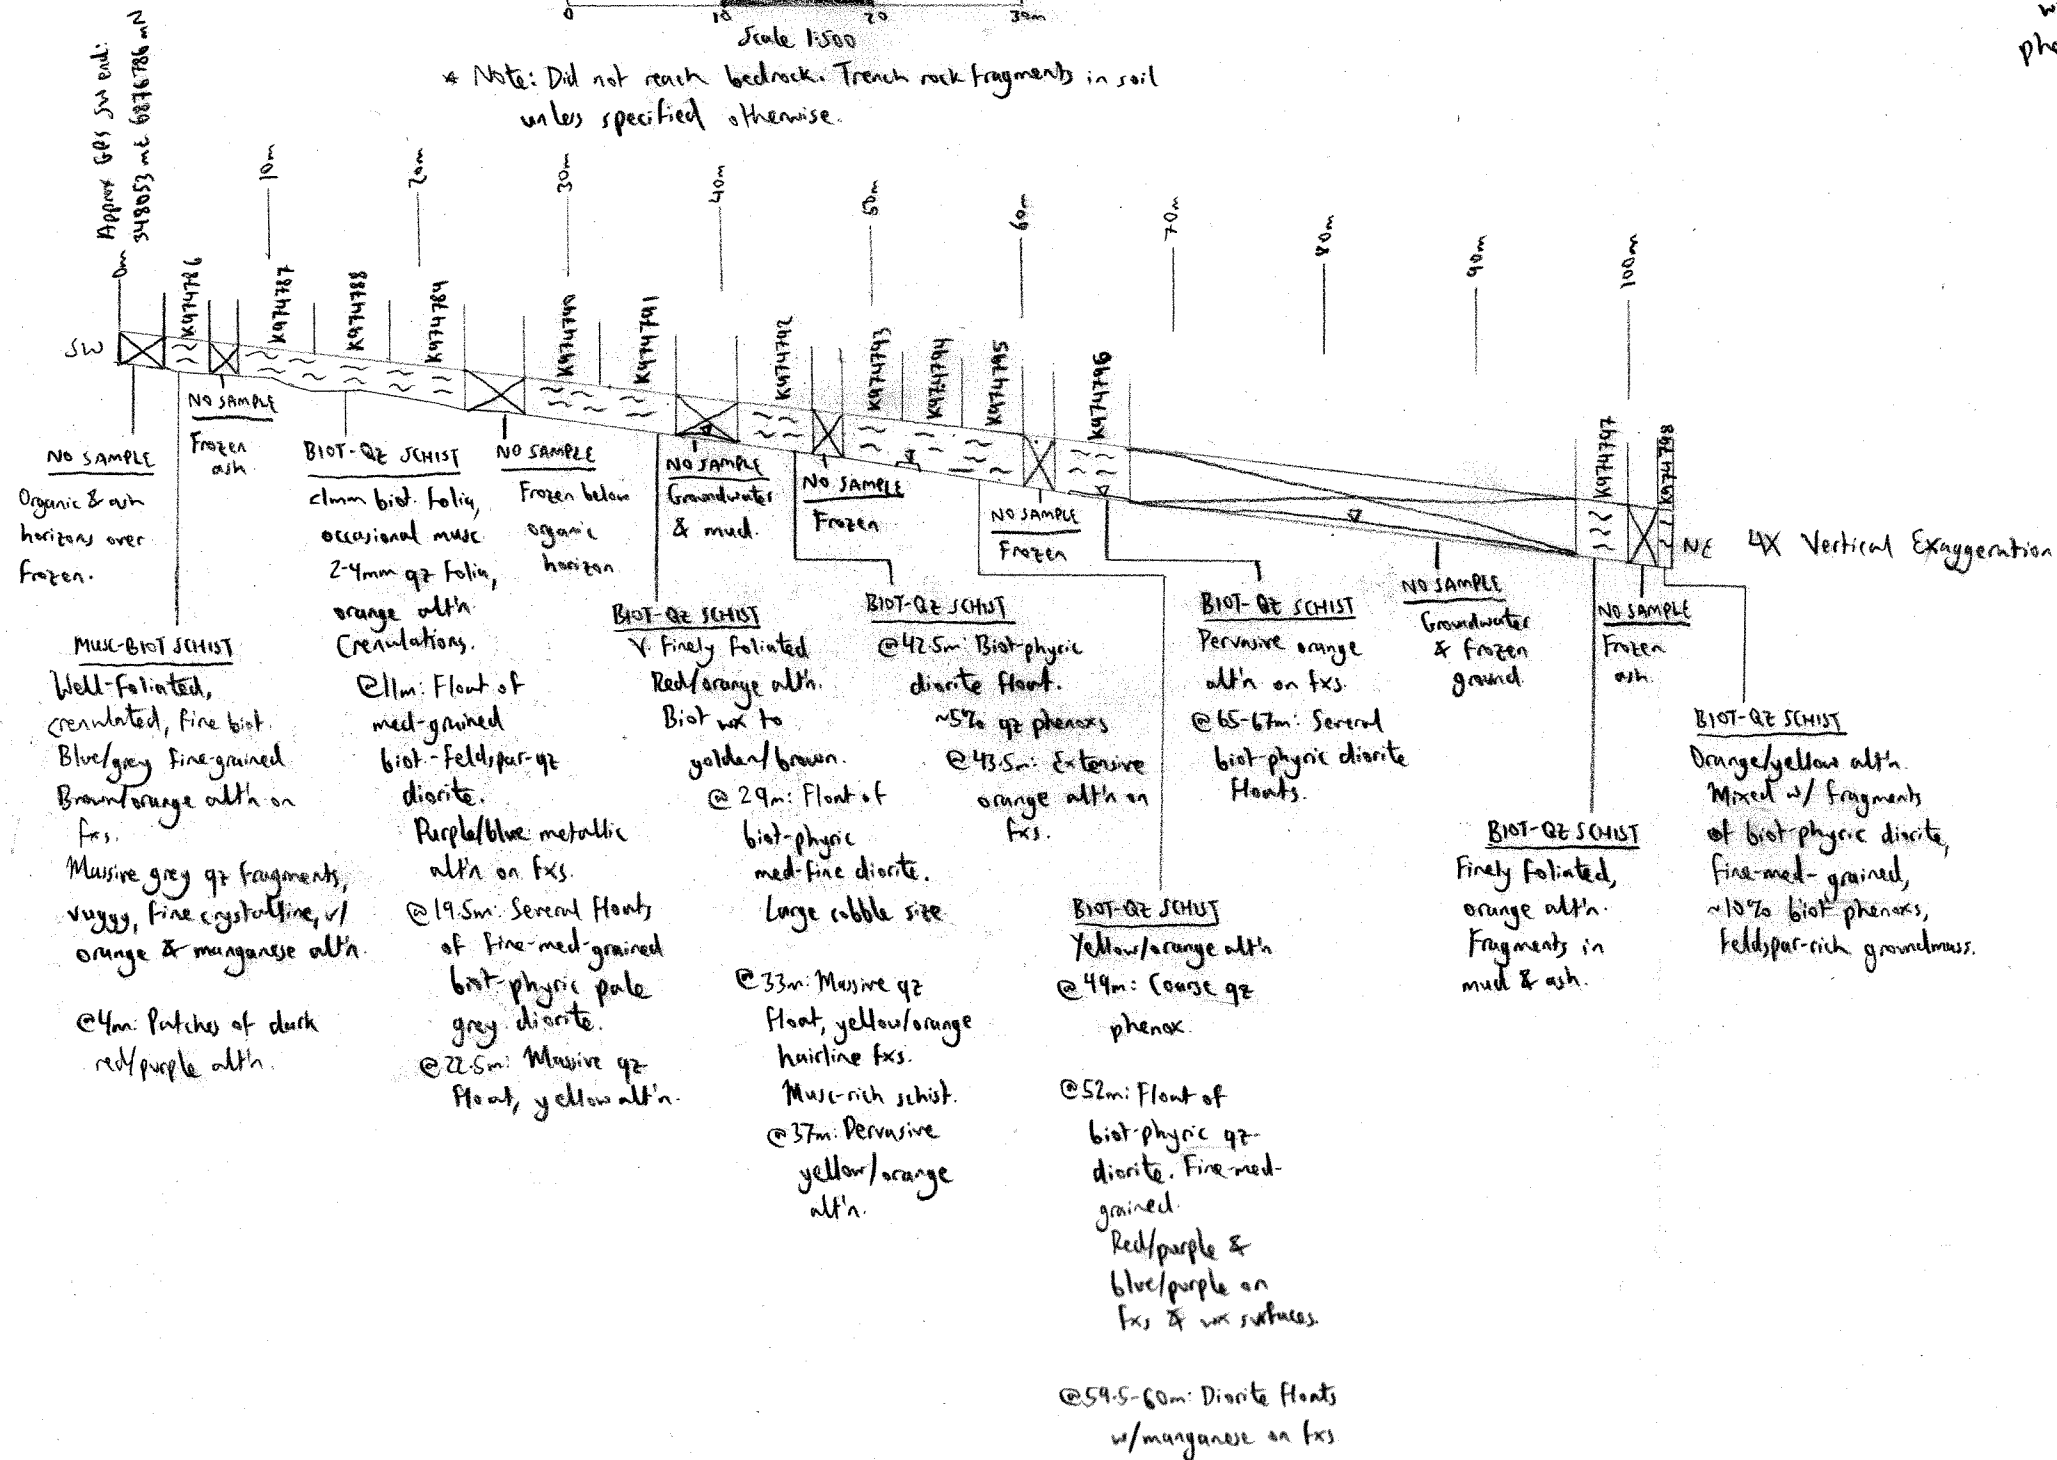 0 10 20 30m
Scale 1:500
* Note: Did not reach bedrock. Trench rock fragments in soil
unless specified otherwise.
Approx GPS SW end:
348053 mE 6876786 mN
0m
10m
20m
30m
40m
50m
60m
70m
80m
90m
100m
K974786
K974787
K974788
K974789
K974790
K974791
K974792
K974793
K974794
K974795
K974796
K974797
K974798
SW
NE 4X Vertical Exaggeration
NO SAMPLE
Organic & ash
horizons over
frozen.
MUSC-BIOT SCHIST
Well-foliated,
crenulated, fine biot.
Blue/grey fine-grained
Brown/orange alt'n on
fxs.
Massive grey qz fragments,
vuggy, fine crystalline, w/
orange & manganese alt'n.
@4m: Patches of dark
red/purple alt'n.
NO SAMPLE
Frozen
ash.
BIOT-QZ SCHIST
<1mm biot. folia,
occasional musc.
2-4mm qz folia,
orange alt'n.
Crenulations.
@11m: Float of
med-grained
biot.-feldspar-qz
diorite.
Purple/blue metallic
alt'n on fxs.
@19.5m: Several floats
of fine-med-grained
biot-phyric pale
grey diorite.
@22.5m: Massive qz
float, yellow alt'n.
NO SAMPLE
Frozen below
organic
horizon.
BIOT-QZ SCHIST
V. finely foliated
Red/orange alt'n.
Biot wx to
golden/brown.
@ 29m: Float of
biot-phyric
med-fine diorite.
Large cobble size
@33m: Massive qz
float, yellow/orange
hairline fxs.
Musc-rich schist.
@37m: Pervasive
yellow/orange
alt'n.
NO SAMPLE
Groundwater
& mud.
BIOT-QZ SCHIST
@42.5m: Biot-phyric
diorite float.
~5% qz phenoxs
@43.5m: Extensive
orange alt'n on
fxs.
NO SAMPLE
Frozen
BIOT-QZ SCHIST
Yellow/orange alt'n
@49m: Coarse qz
phenox.
@52m: Float of
biot-phyric qz-
diorite. Fine-med-
grained.
Red/purple &
blue/purple on
fxs & wx surfaces.
@59.5-60m: Diorite floats
w/manganese on fxs
NO SAMPLE
Frozen
BIOT-QZ SCHIST
Pervasive orange
alt'n on fxs.
@65-67m: Several
biot-phyric diorite
floats.
NO SAMPLE
Groundwater
& frozen
ground.
BIOT-QZ SCHIST
Finely foliated,
orange alt'n.
Fragments in
mud & ash.
NO SAMPLE
Frozen
ash.
BIOT-QZ SCHIST
Orange/yellow alt'n.
Mixed w/ fragments
of biot-phyric diorite,
fine-med-grained,
~10% biot phenoxs,
feldspar-rich groundmass.